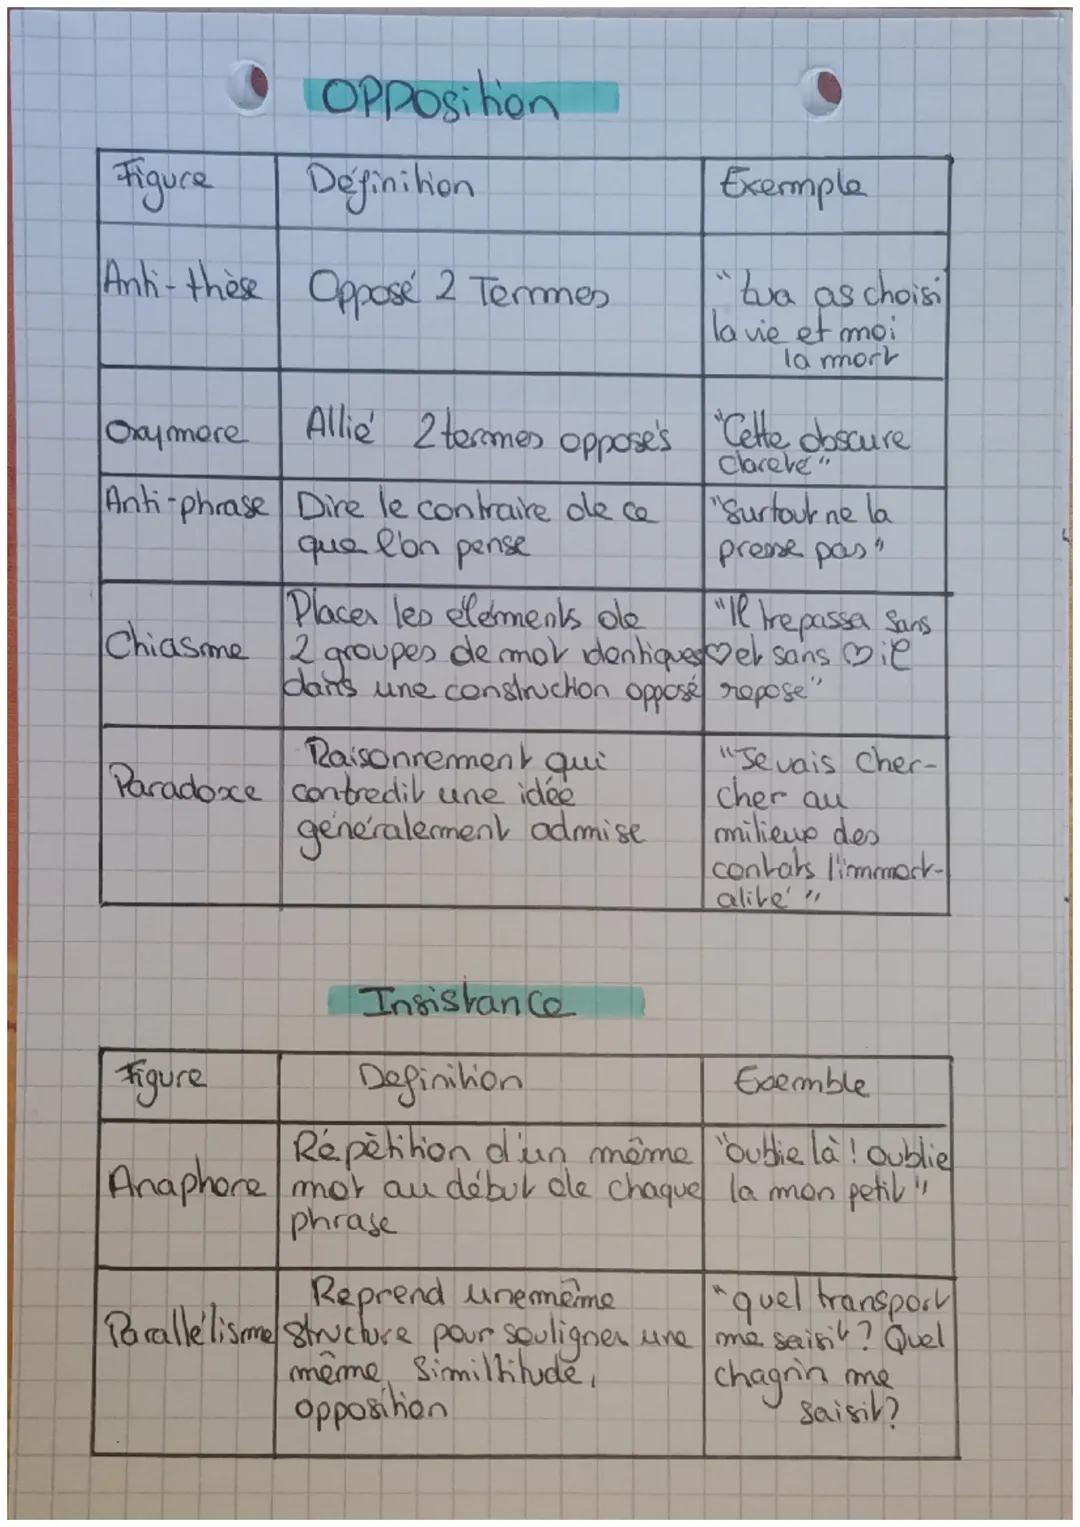 Opposition
Figure Définition Exemple
Anti-thèse Opposé 2 Termes "tua as choisi
la vie et moi
la mort
Oxymore Allié 2 termes opposés "Cette obscure
clareté"
Anti-phrase Dire le contraire de ce "Surtout ne la
que l'on pense presse pas"
Placer les éléments de "Il trepassa sans
Chiasme 2 groupes de mot identiques ♡ et sans ♡ il
dans une construction opposé repose"
Raisonnement qui "Je vais cher-
Paradoxe contredit une idée cher au
généralement admise milieux des
l'immort-
alité"
Insistance
Figure Définition Exemble
Répètition d'un même "oublie là ! oublie
Anaphore mot au début de chaque la mon petit"
phrase
Reprend une même "quel transport
Parallélisme structure pour souligner une me saisit ? Quel
même, Similtitude, chagrin me
opposition saisit ?